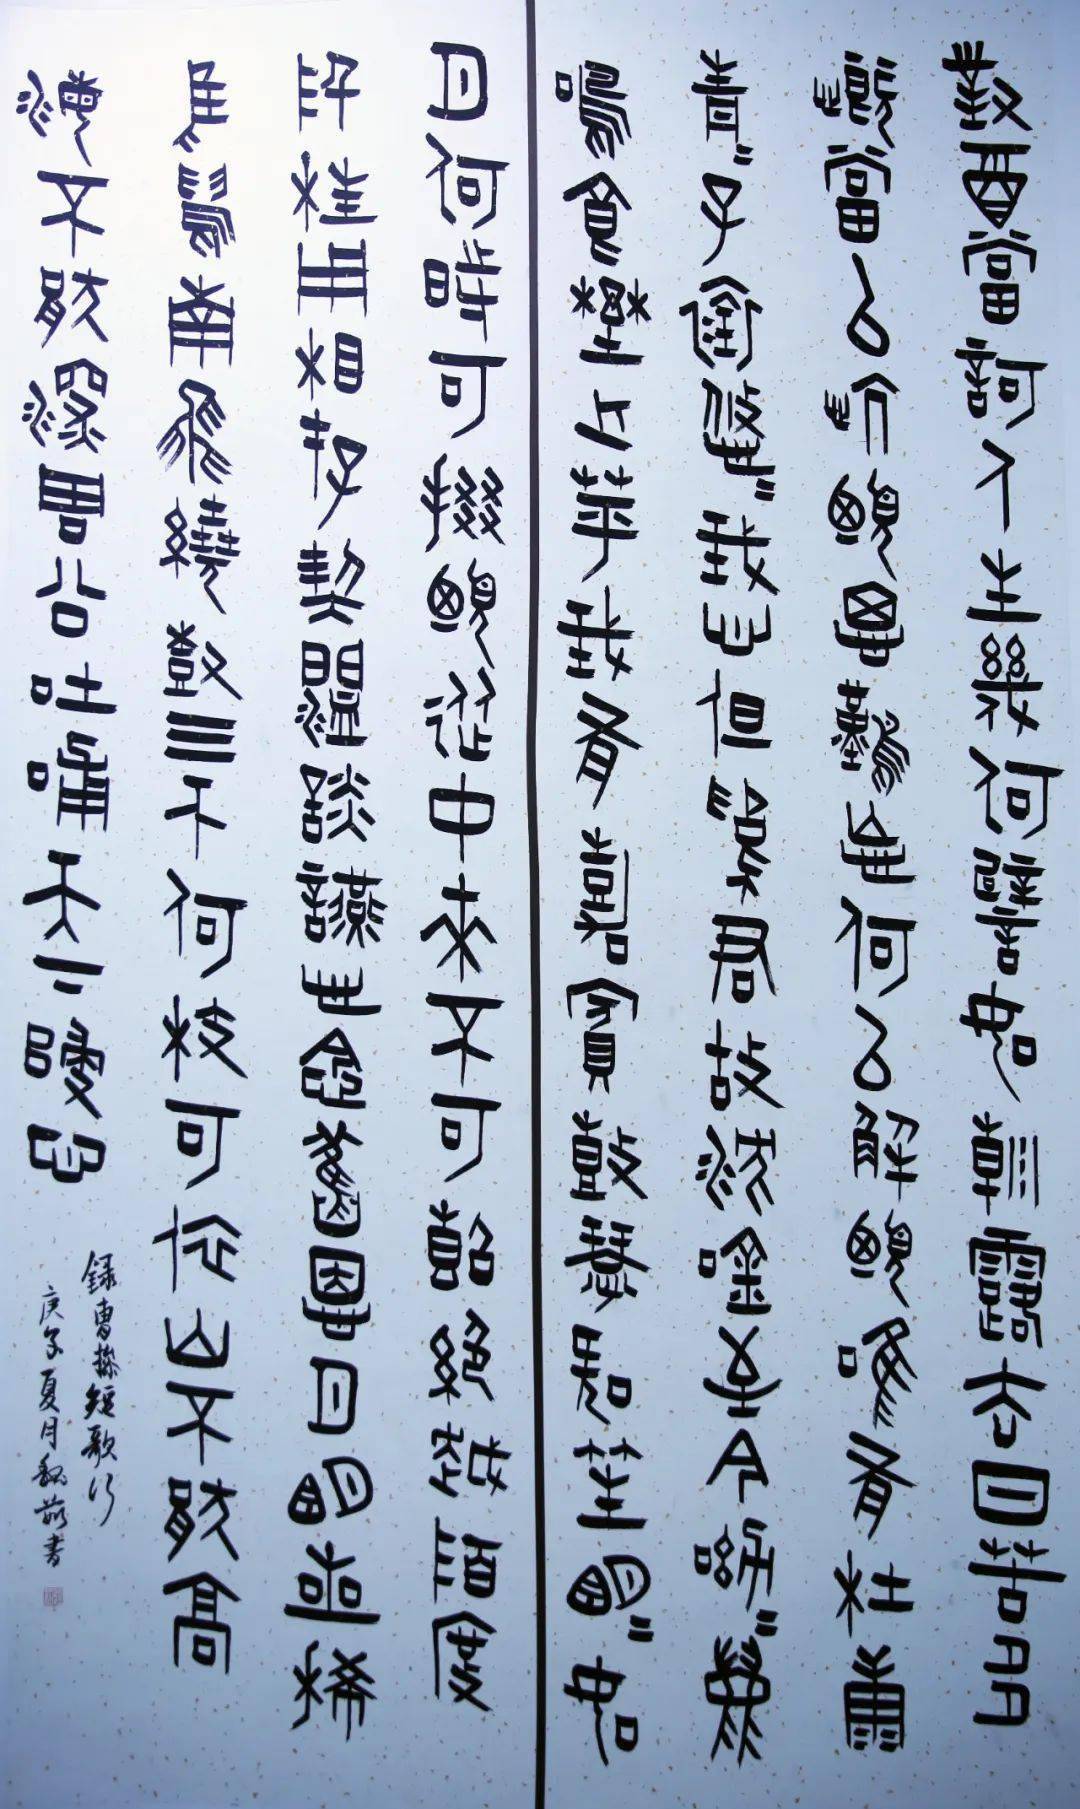 對酒當歌人生幾何譬如朝露去日苦多
慨當以慷憂思難忘何以解憂唯有杜康
青〻子衿悠〻我心但爲君故沈吟至今呦〻鹿
鳴食野之苹我有嘉賓鼓瑟吹笙明〻如
月何時可掇憂從中來不可斷絕越陌度
阡枉用相存契闊談讌心念舊恩月明星稀
烏鵲南飛繞樹三匝何枝可依山不厭高
海不厭深周公吐哺天下歸心
錄曹操短歌行
庚子夏月魏茹書